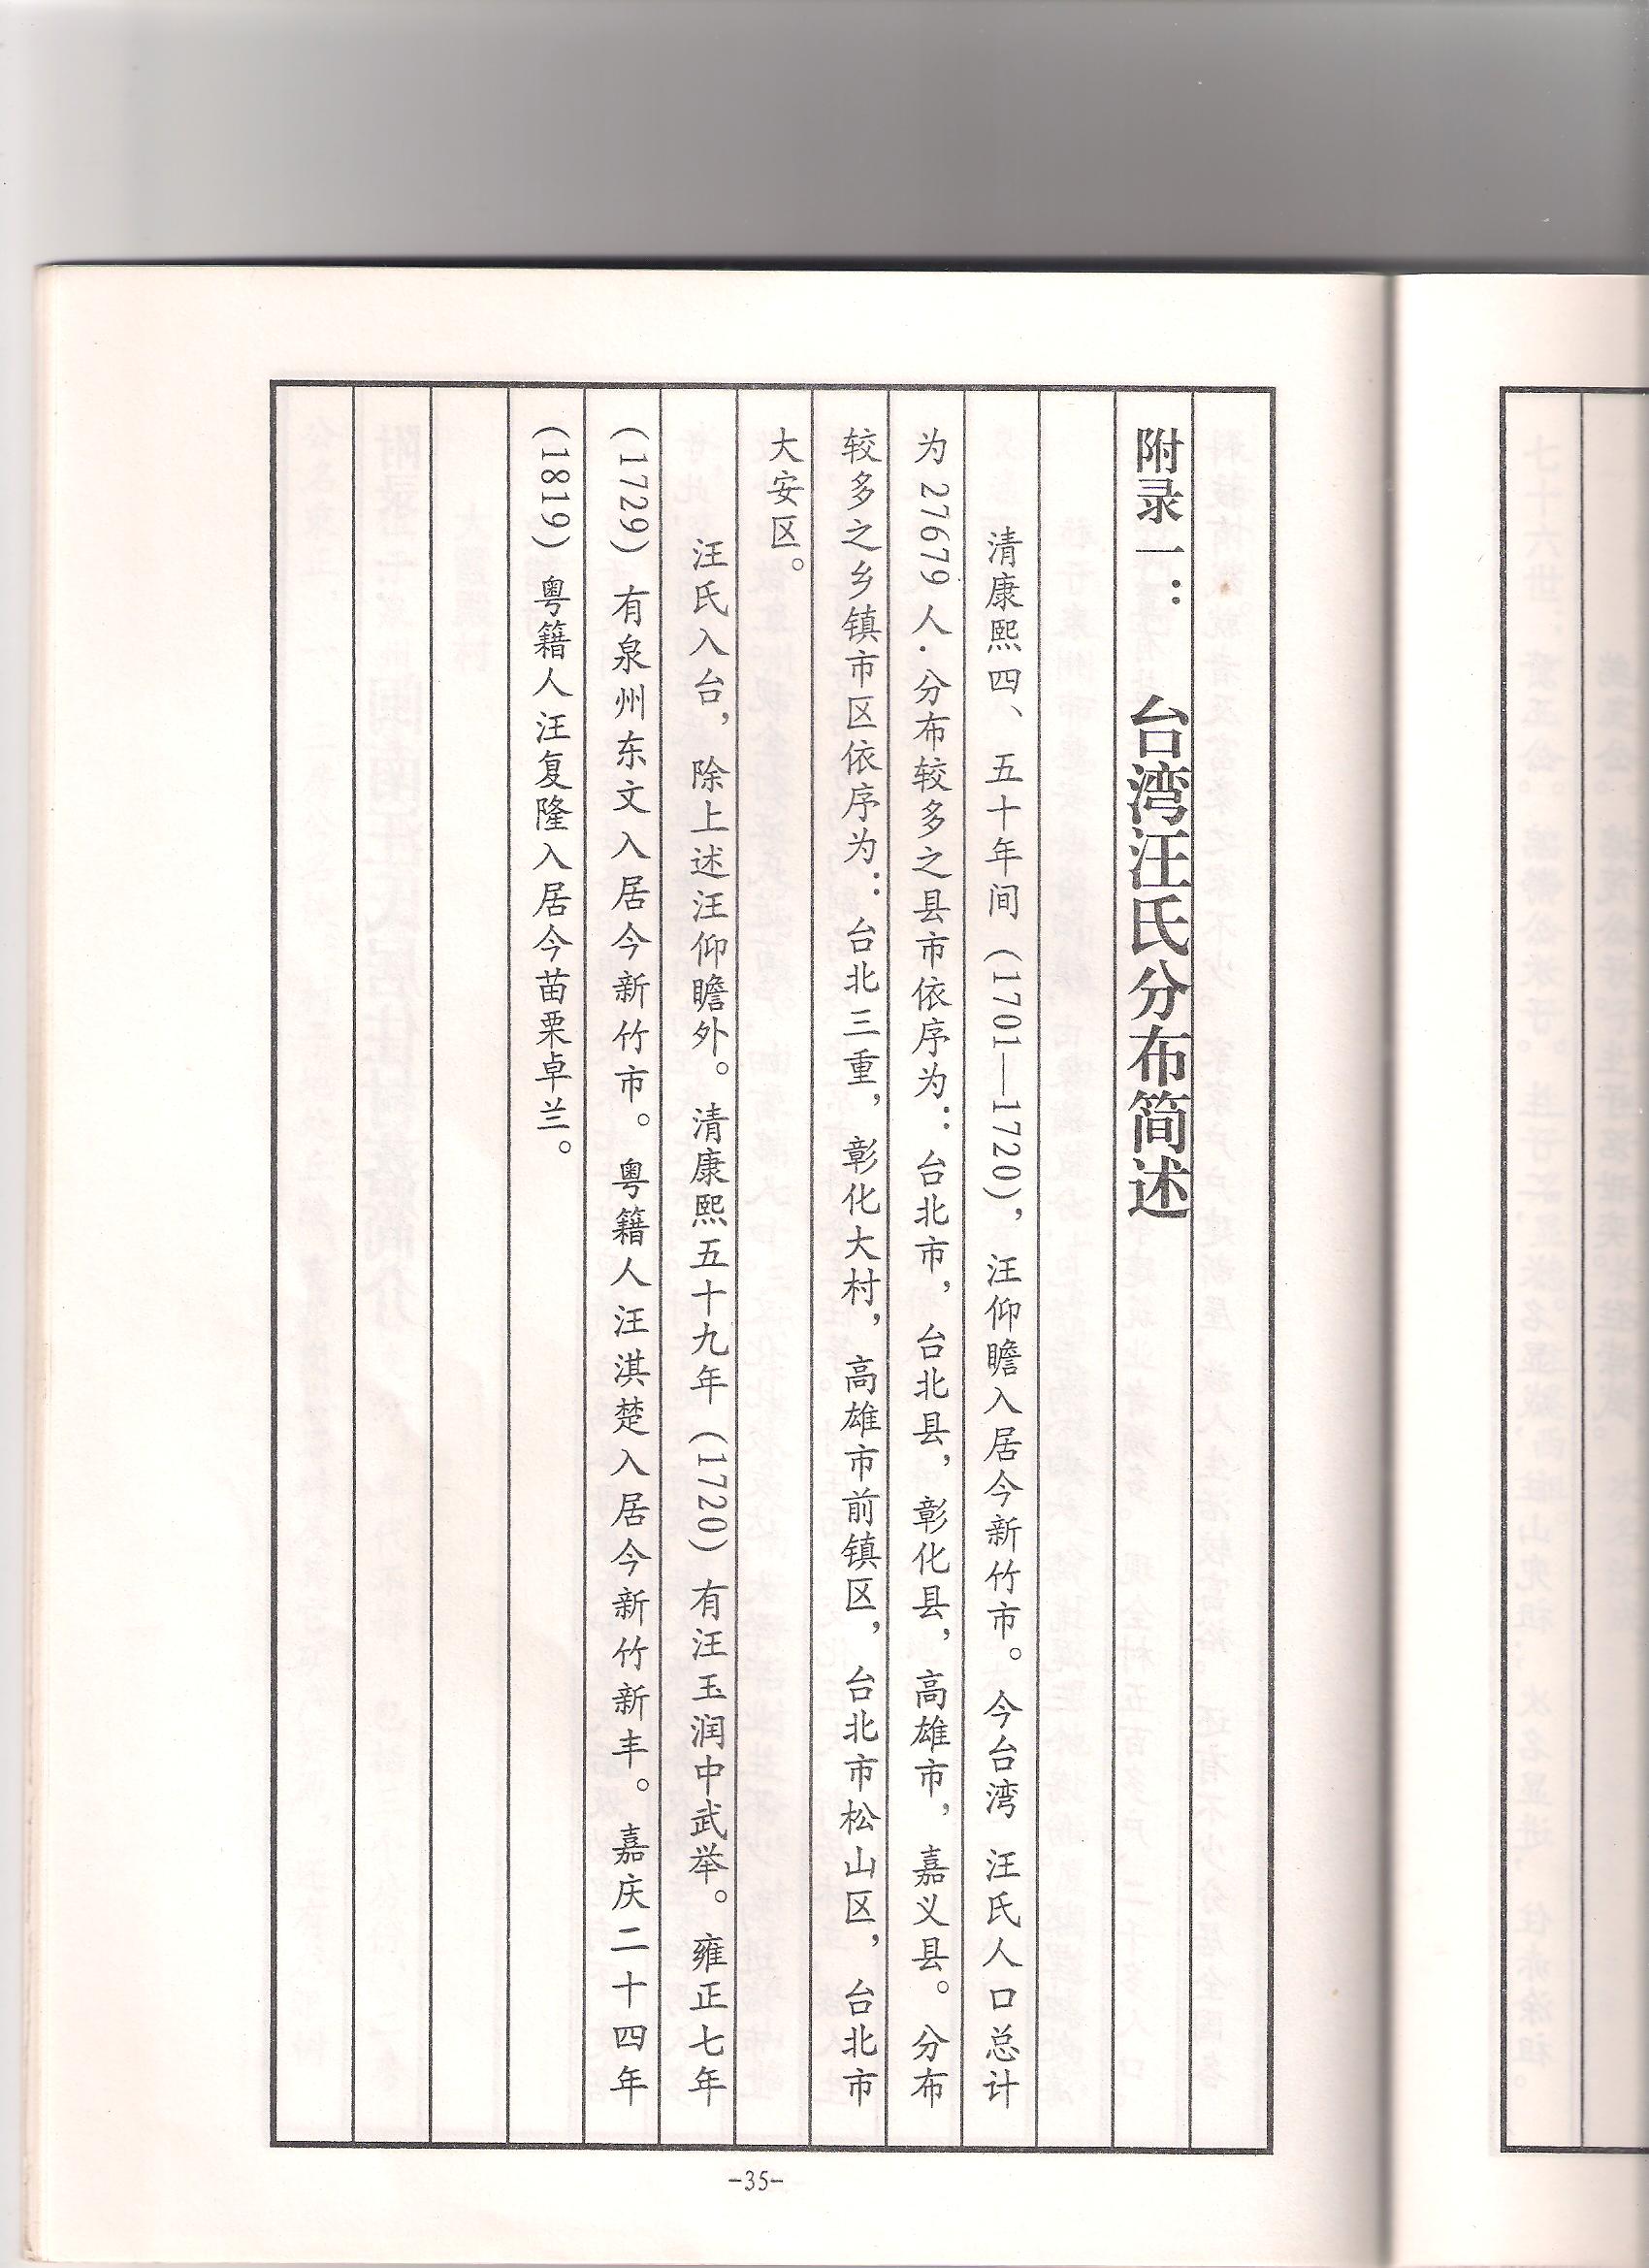 附录一： 台湾汪氏分布简述
清康熙四、五十年间（1701—1720），汪仰瞻入居今新竹市。今台湾 汪氏人口总计
为 27679 人．分布较多之县市依序为：台北市，台北县，彰化县，高雄市，嘉义县。分布
较多之乡镇市区依序为：台北三重，彰化大村，高雄市前镇区，台北市松山区，台北市
大安区。
汪氏入台，除上述汪仰瞻外。清康熙五十九年（1720）有汪玉润中武举。雍正七年
（1729）有泉州东文入居今新竹市。粤籍人汪淇楚入居今新竹新丰。嘉庆二十四年
（1819）粤籍人汪复隆入居今苗栗卓兰。
-35-